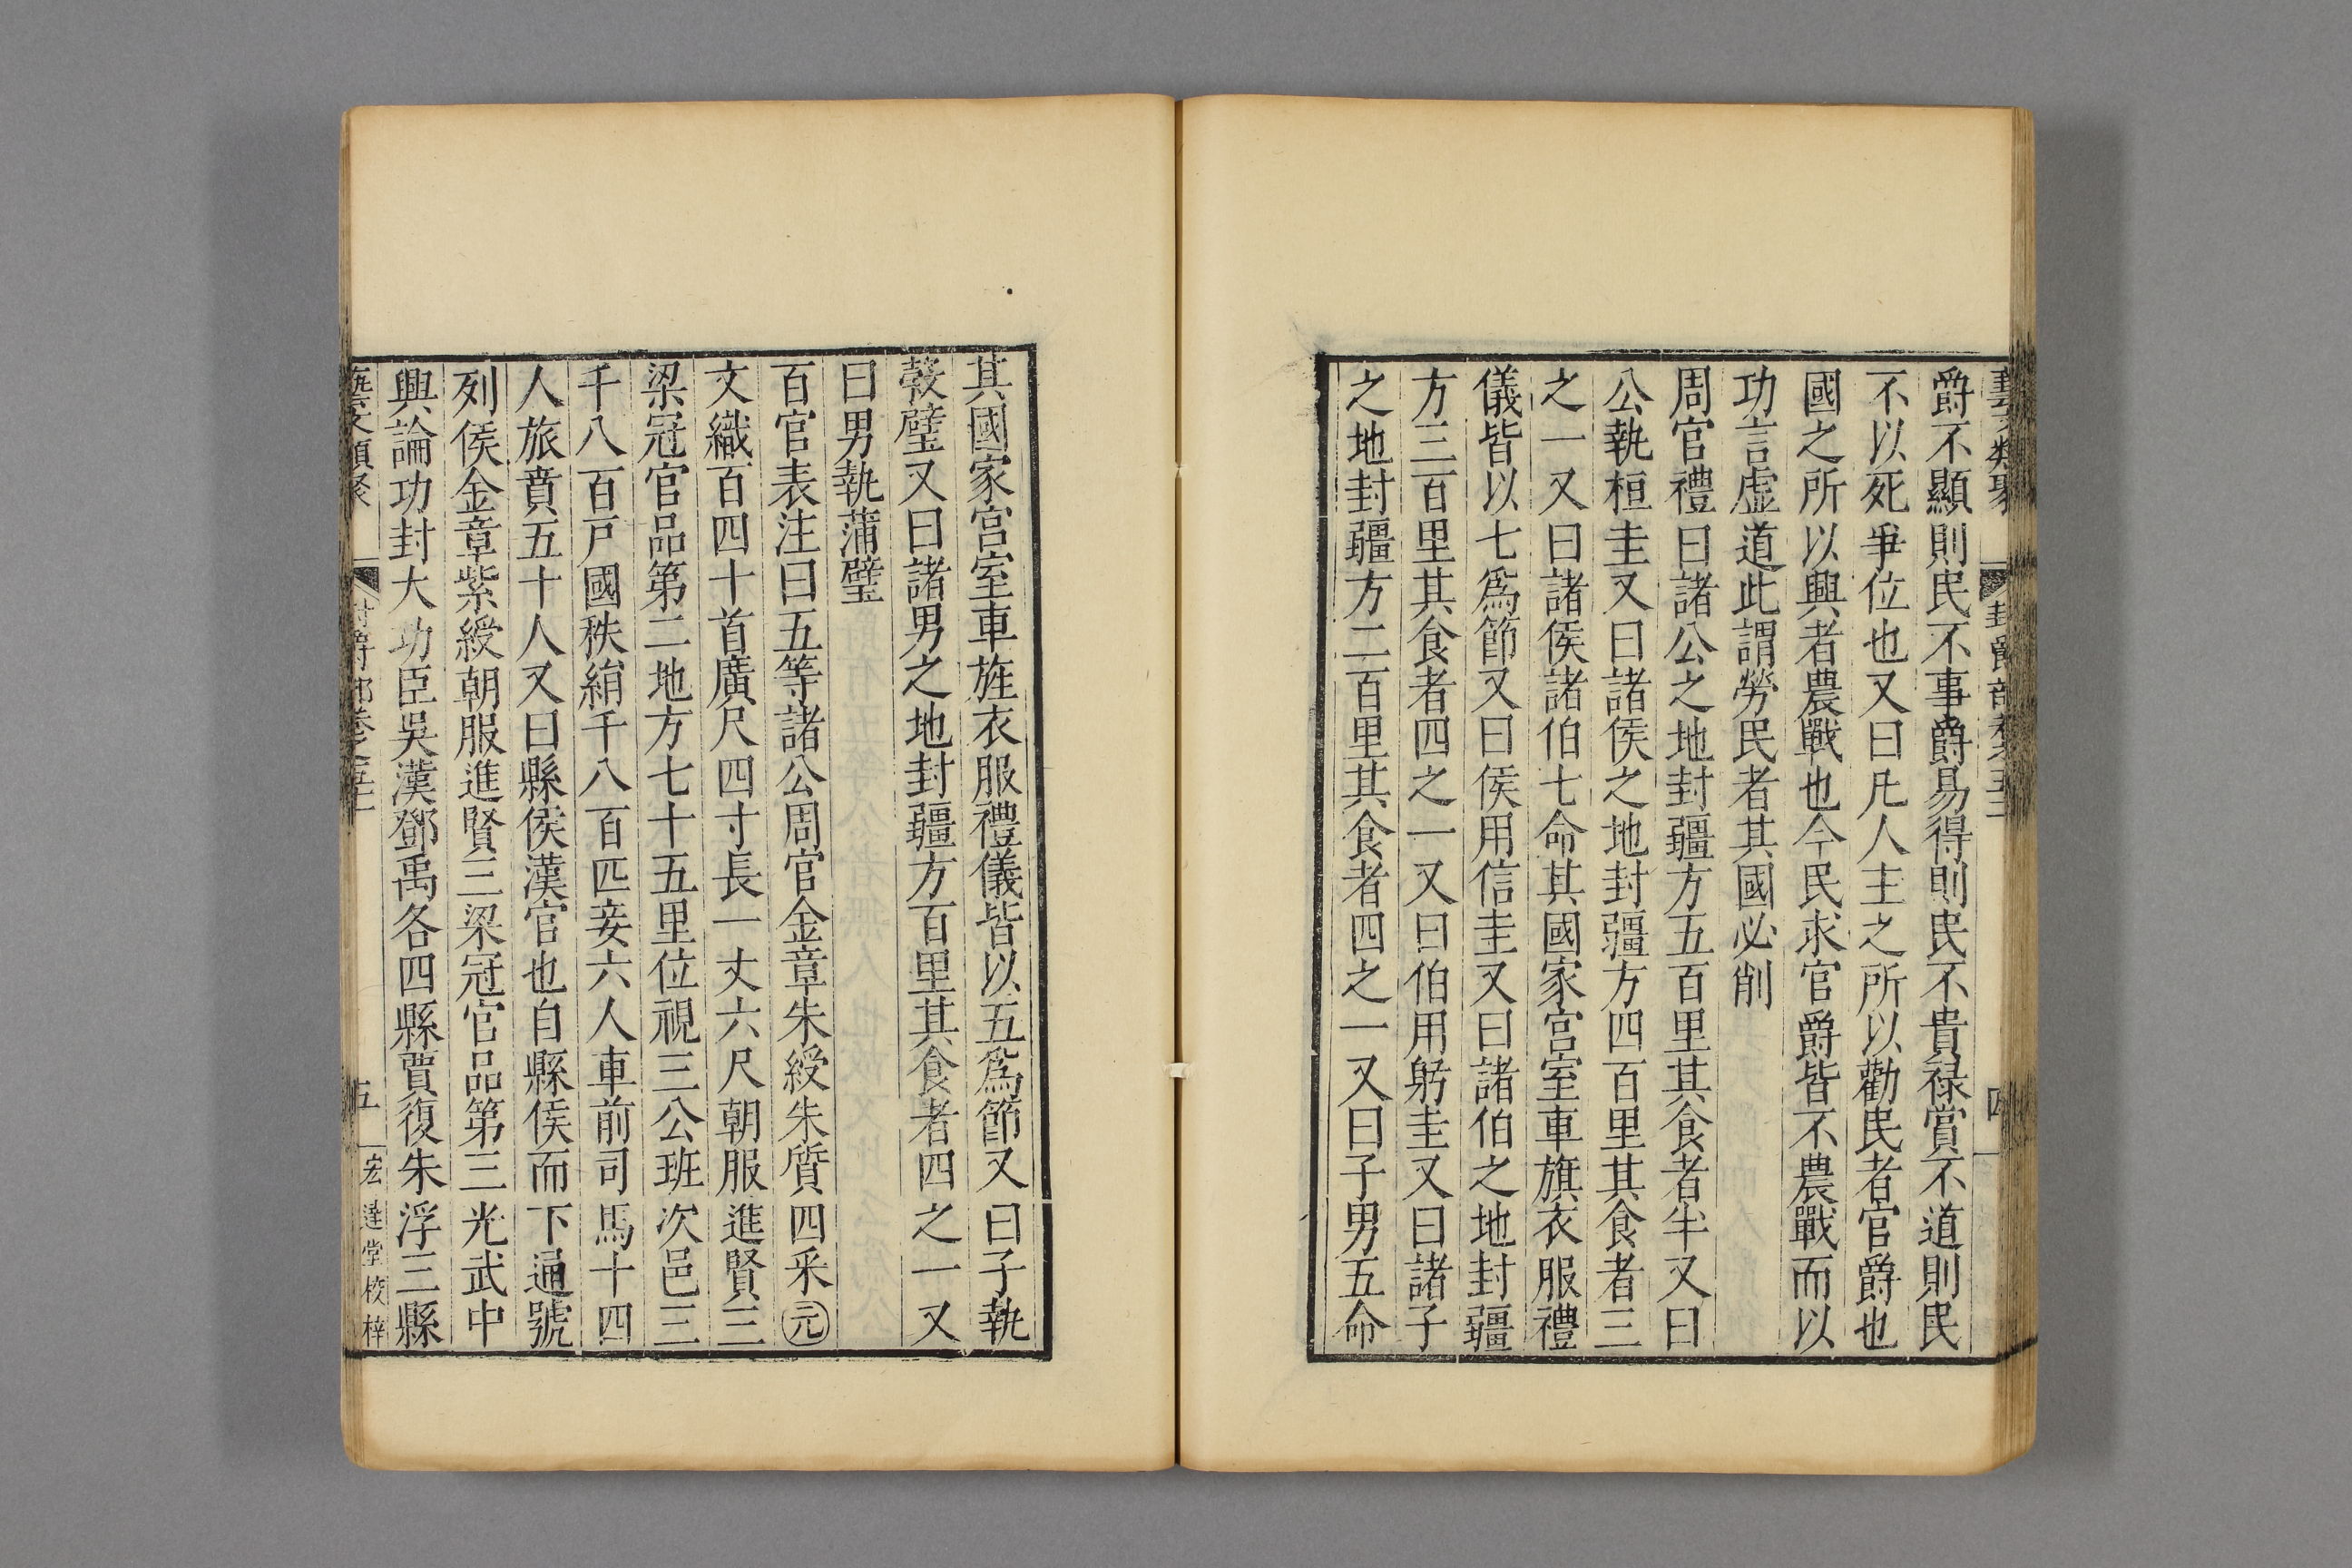 藝文類聚 封爵部卷五十一 四
爵不顯則民不事爵易得則民不貴祿賞不道則民
不以死爭位也又曰凡人主之所以勸民者官爵也
國之所以興者農戰也今民求官爵皆不農戰而以
功言虛道此謂勞民者其國必削
周官禮曰諸公之地封疆方五百里其食者半又曰
公執桓圭又曰諸侯之地封疆方四百里其食者三
之一又曰諸侯諸伯七命其國家宮室車旗衣服禮
儀皆以七爲節又曰侯用信圭又曰諸伯之地封疆
方三百里其食者四之一又曰伯用躬圭又曰諸子
之地封疆方二百里其食者四之一又曰子男五命
其國家宮室車旌衣服禮儀皆以五爲節又曰子執
穀璧又曰諸男之地封疆方百里其食者四之一又
曰男執蒲璧
百官表注曰五等諸公周官金章朱綬朱質四采㊤元
文織百四十首廣尺四寸長一丈六尺朝服進賢三
梁冠官品第二地方七十五里位視三公班次邑三
千八百戶國秩絹千八百匹妾六人車前司馬十四
人旅賁五十人又曰縣侯漢官也自縣侯而下通號
列侯金章紫綬朝服進賢三梁冠官品第三光武中
興論功封大功臣吳漢鄧禹各四縣賈復朱浮三縣
藝文類聚 封爵部卷五十一 五 宏達堂校梓